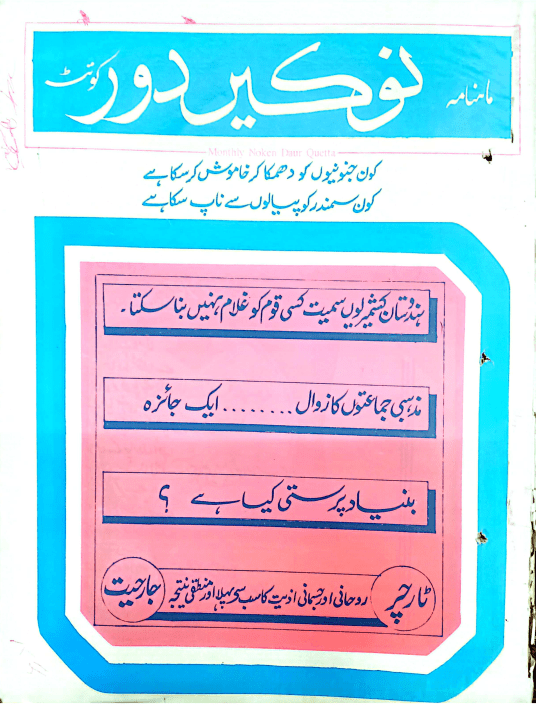 ماہنامہ نوکیں دور کوئٹہ
Monthly Noken Daur Quetta
کون جنونیوں کو دھمکا کر خاموش کر سکا ہے
کون سمندر کو پیالوں سے ناپ سکا ہے
ہندوستان کشمیریوں سمیت کسی قوم کو غلام نہیں بنا سکتا ۔
مذہبی جماعتوں کا زوال ........ ایک جائزہ
بنیاد پرستی کیا ہے ؟
ٹارچر روحانی اور جسمانی اذیت کا سب سے پہلا اور منطقی نتیجہ جارحیت